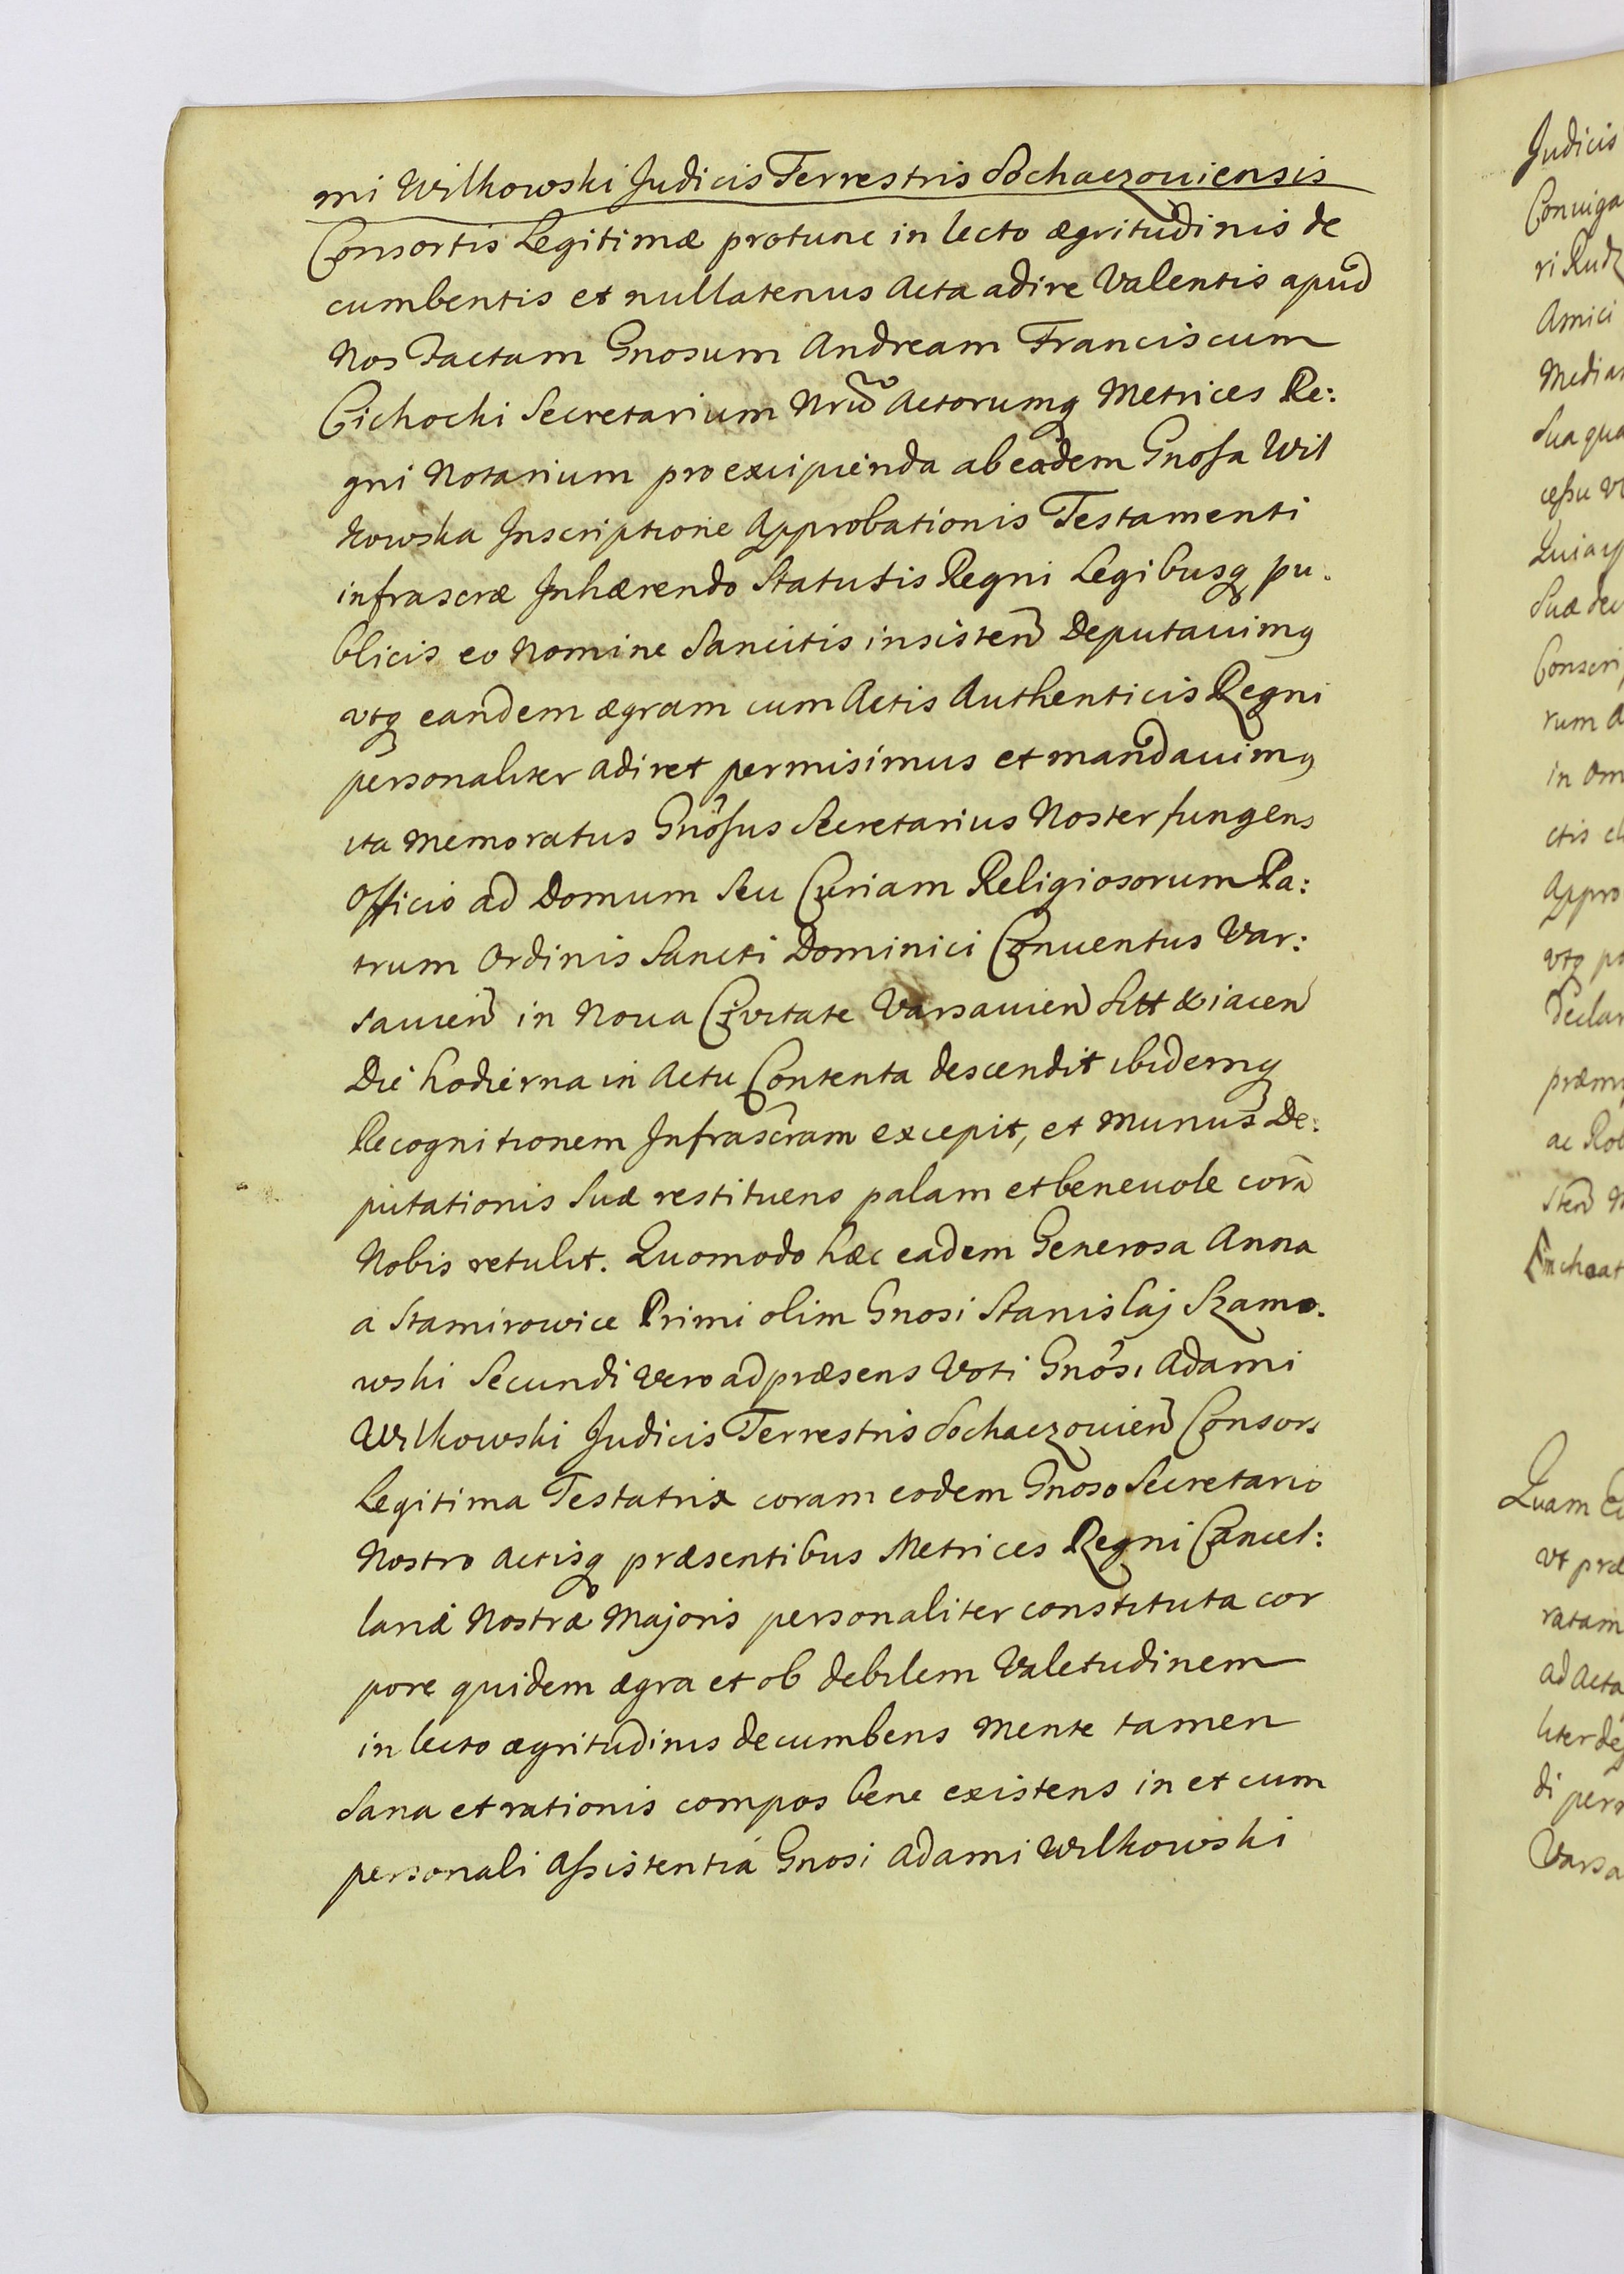 mi Wilkowski Judicis Terrestris Sochaczouiensis
Consortis Legitimæ protunc in lecto ægritudinis de
cumbentis et nullatenus Acta adire Valentis apud
Nos Factam Gnosum Andream Franciscum
Cichocki Secretarium Nrũ Actorumq Metrices Re:
gni Notarium pro excipienda ab eadem Gnosa Wil
kowska Inscriptione Approbationis Testamenti
infrascræ Inhærendo Statutis Regni Legibusq pu.
blicis eo Nomine Sancitis insisteñ Deputauimq
vtq eandem ægram cum Actis Authenticis Regni
personaliter adiret permisimus et mandauimq
ita memoratus Gnôsus Secretarius Noster fungens
Officio ad Domum Seu Curiam Religiosorum Pa:
trum Ordinis Sancti Dominici Conuentus Var:
sauieñ in Noua Ciuitate Varsauieñ Sitt & iaceñ
Die hodierna in Actu Contenta descendit ibidemq
Recognitionem Infrascr̃am excepit, et munus De:
putationis Suæ restituens palam et beneuole corã
Nobis retulit. Quomodo hæc eadem Generosa Anna
a Stamirowice Primi olim Gnosi Stanislaj Szamo.
wski Secundi Vero ad præsens Voti Gnôsi Adami
Wilkowski Judicis Terrestris Sochaczouieñ Consors
Legitima Testatrix coram eodem Gnoso Secretario
Nostro Actisq præsentibus Metrices Regni Cancel:
lariæ Nostræ Majoris personaliter constituta cor
pore quidem ægra et ob debilem Valetudinem
in lecto ægritudinis decumbens mente tamen
Sana et rationis compos bene existens in et cum
personali Assistentiá Gnosi Adami Wilkowski
Judicis
Amici
rum A
Varsa